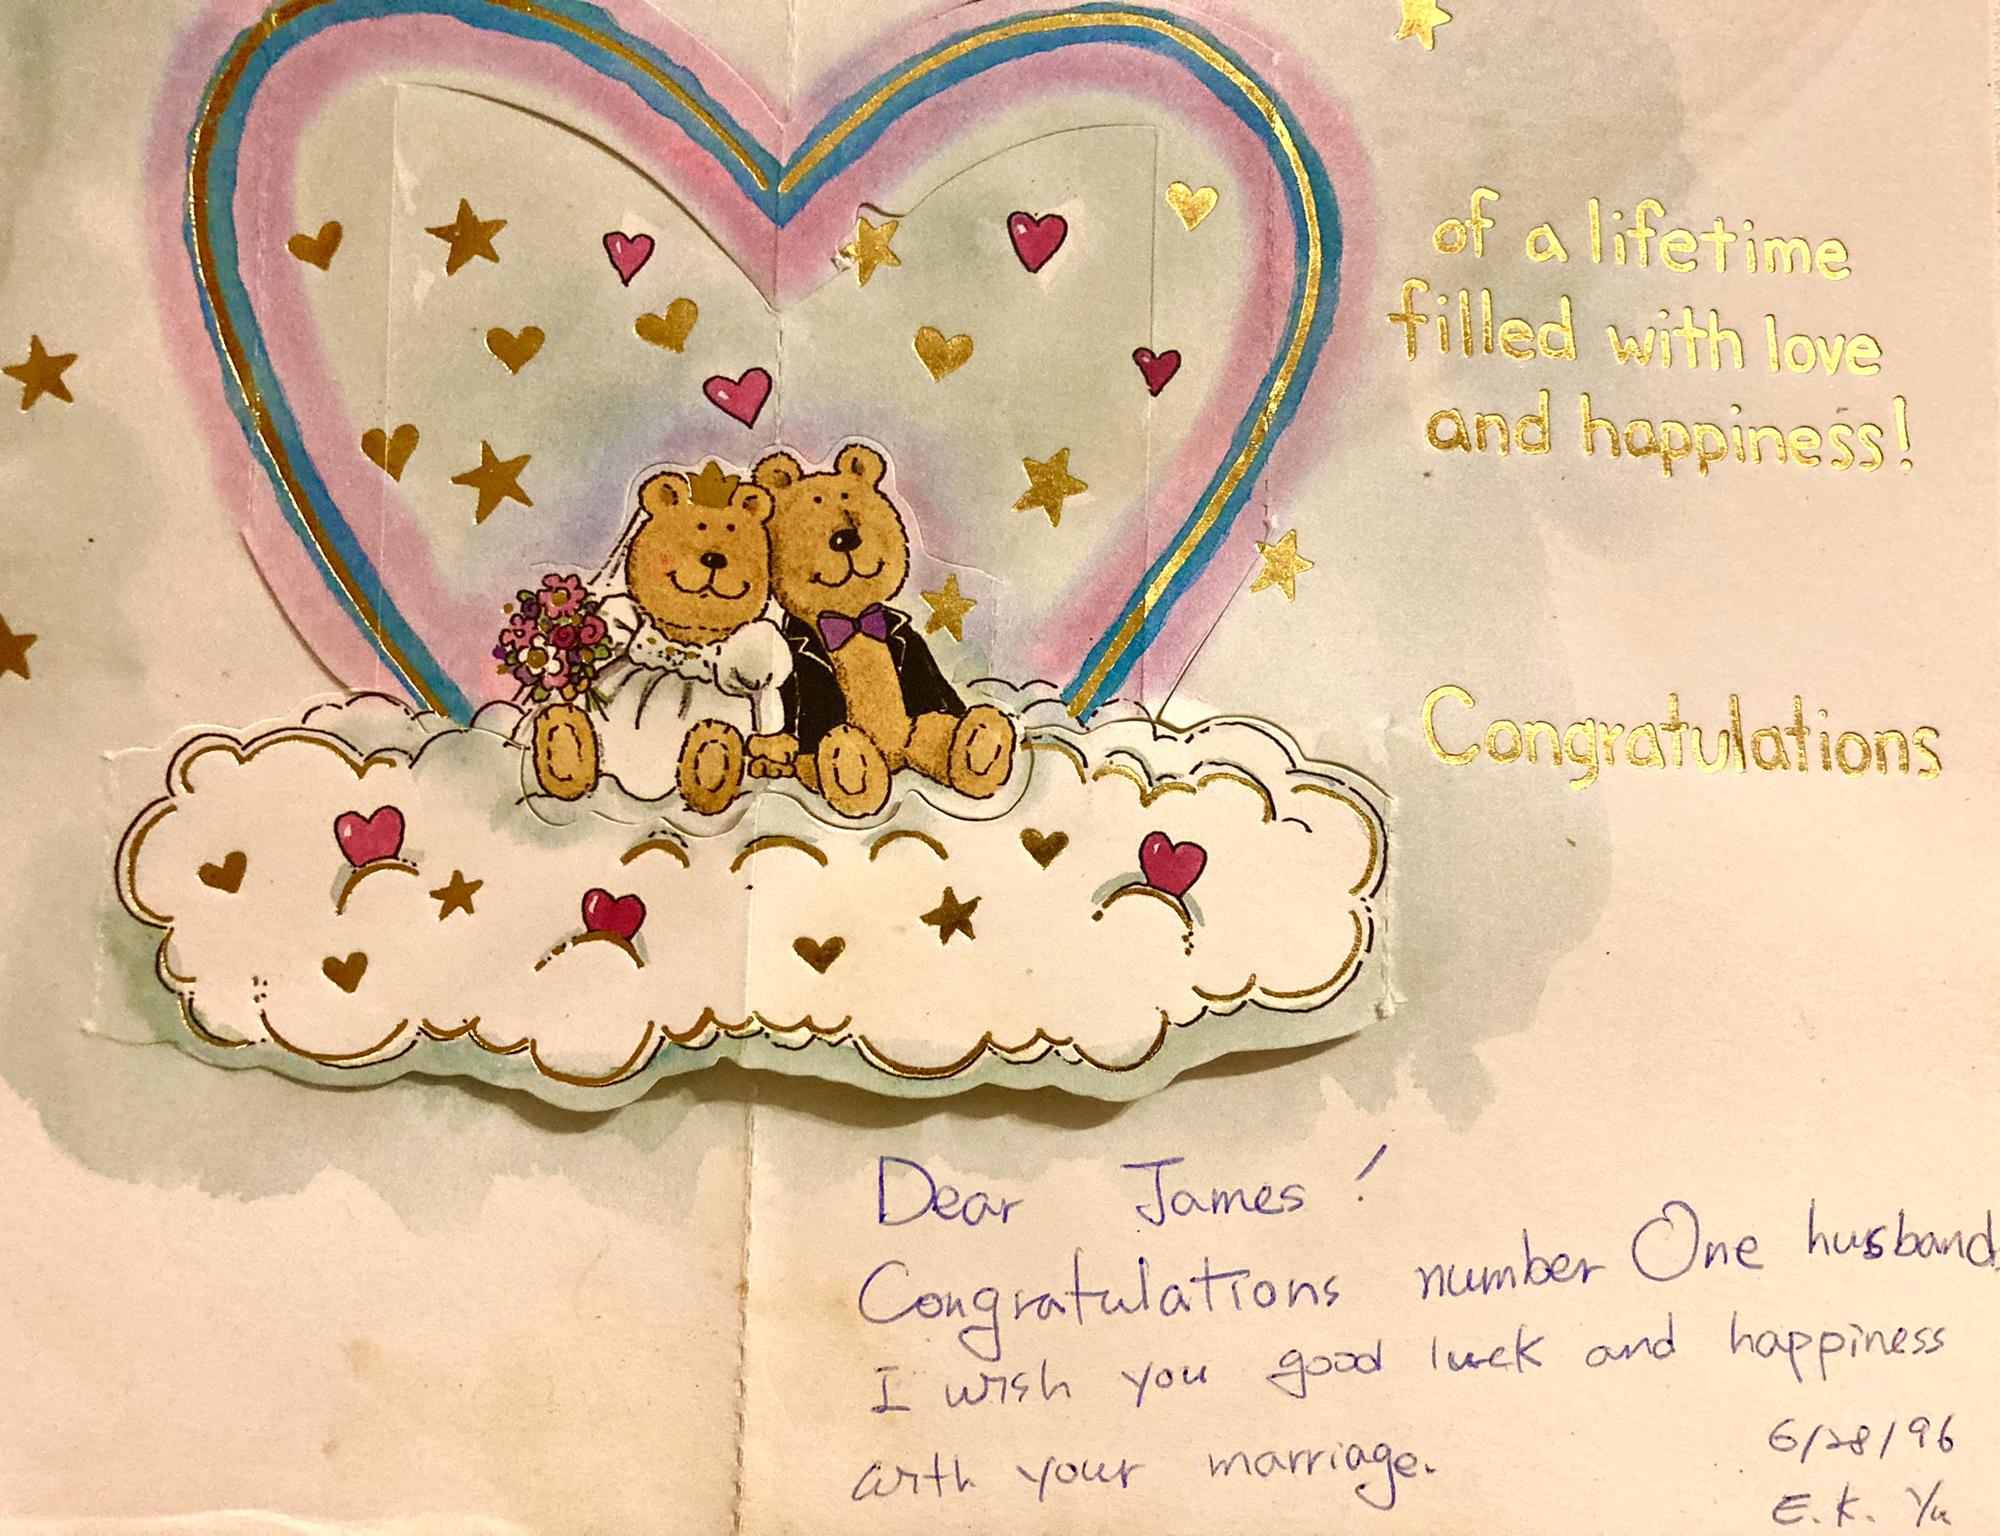 of a lifetime
filled with love
and happiness!
Congratulations
Dear James!
Congratulations number One husband,
I wish you good luck and happiness
with your marriage.
6/28/96
E.K. Yu